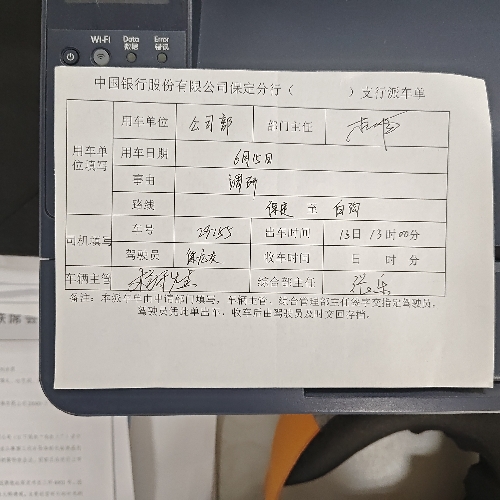 Wi-Fi Data 数据 Error 错误
中国银行股份有限公司保定分行（ ）支行派车单
用车单位填写 用车单位 公司部 部门主任
用车日期 6月15日
事由 调研
路线 保定 至 白沟
司机填写 车号 29155 出车时间 13日 13时00分
驾驶员 收车时间 日 时 分
车辆主管 综合部主任
备注：本派车单由申请部门填写，车辆主管、综合管理部主任签字交指定驾驶员，
驾驶员凭此单出车，收车后由驾驶员及时交回存档。